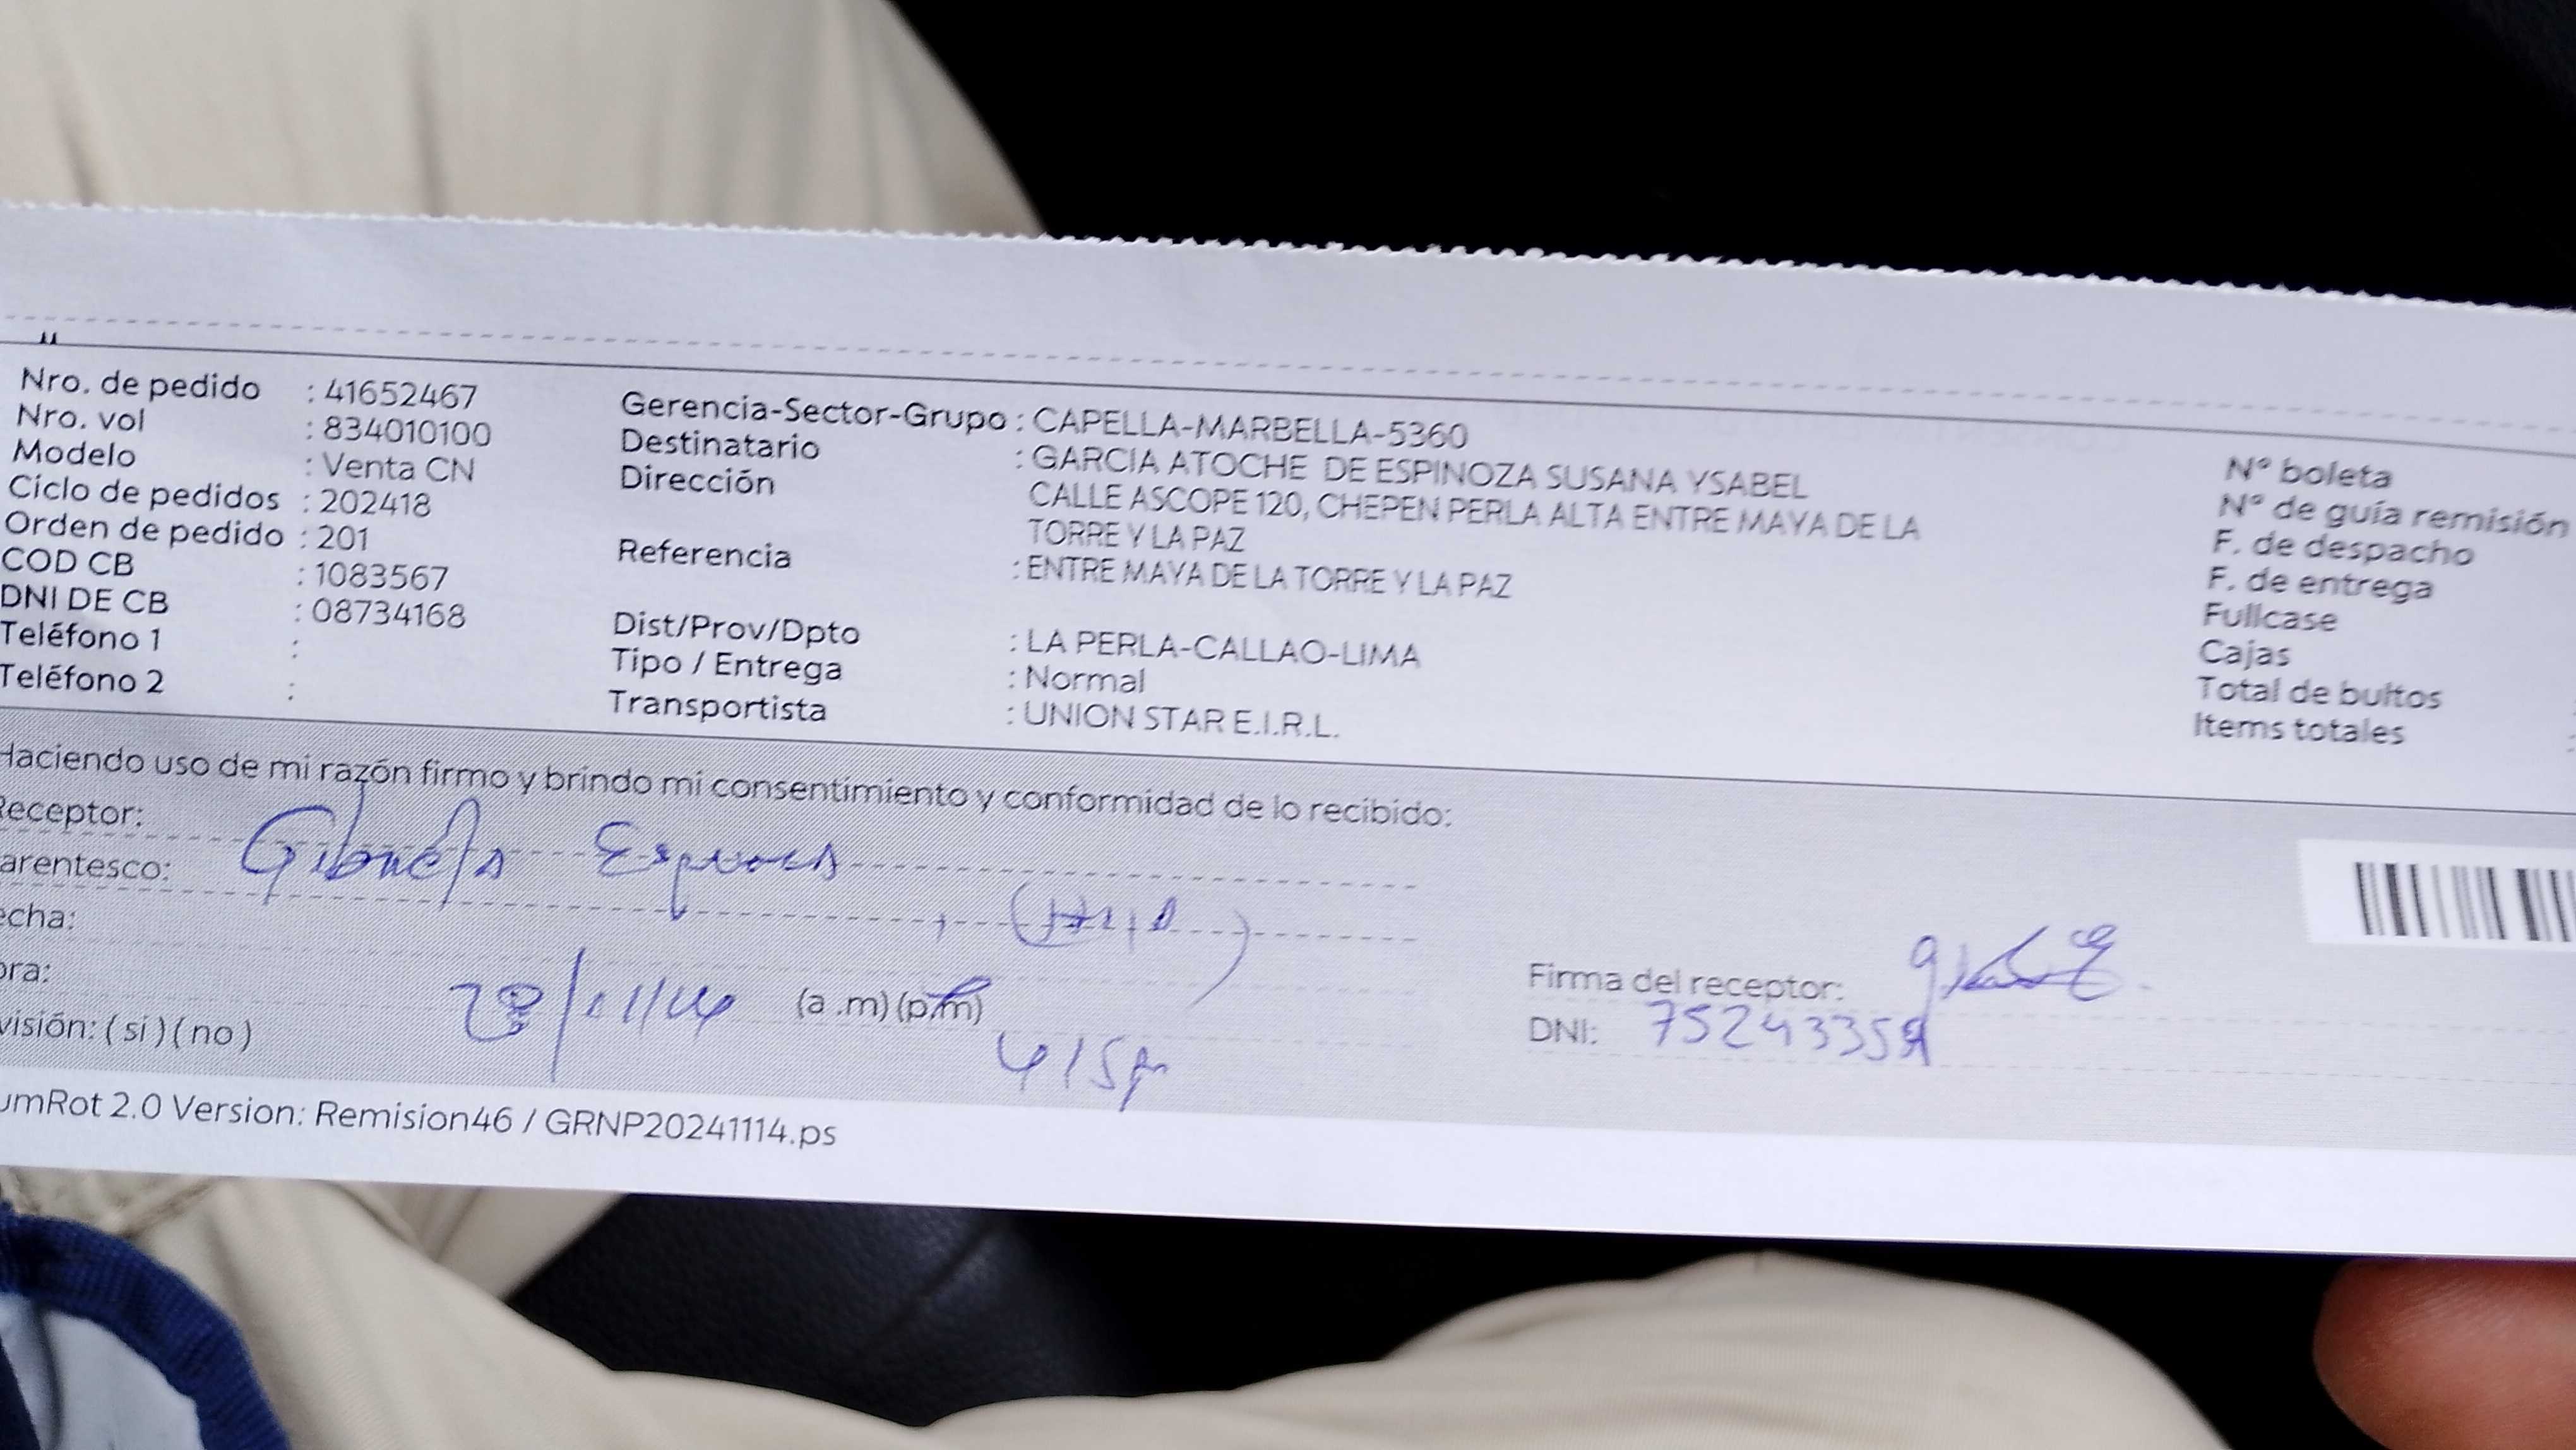 Nro. de pedido : 41652467
Nro. vol : 834010100
Modelo : Venta CN
Ciclo de pedidos : 202418
Orden de pedido : 201
COD CB : 1083567
DNI DE CB : 08734168
Teléfono 1 :
Teléfono 2 :
Gerencia-Sector-Grupo : CAPELLA-MARBELLA-5360
Destinatario : GARCIA ATOCHE DE ESPINOZA SUSANA YSABEL
Dirección CALLE ASCOPE 120, CHEPEN PERLA ALTA ENTRE MAYA DE LA
TORRE Y LA PAZ
Referencia : ENTRE MAYA DE LA TORRE Y LA PAZ
Dist/Prov/Dpto : LA PERLA-CALLAO-LIMA
Tipo / Entrega : Normal
Transportista : UNION STAR E.I.R.L.
N° boleta
N° de guía remisión
F. de despacho
F. de entrega
Fullcase
Cajas
Total de bultos
Items totales
Haciendo uso de mi razón firmo y brindo mi consentimiento y conformidad de lo recibido:
Receptor:
arentesco:
echa:
ora:
(a .m) (p.m)
visión: ( si ) ( no )
Firma del receptor:
DNI:
umRot 2.0 Version: Remision46 / GRNP20241114.ps